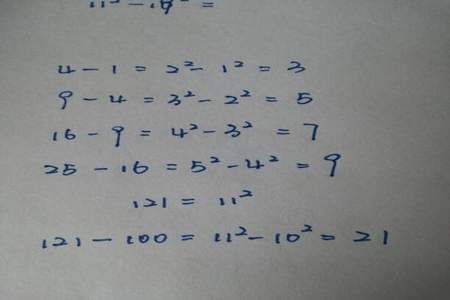 11² - 10² =
4 - 1 = 2² - 1² = 3
9 - 4 = 3² - 2² = 5
16 - 9 = 4² - 3² = 7
25 - 16 = 5² - 4² = 9
121 = 11²
121 - 100 = 11² - 10² = 21